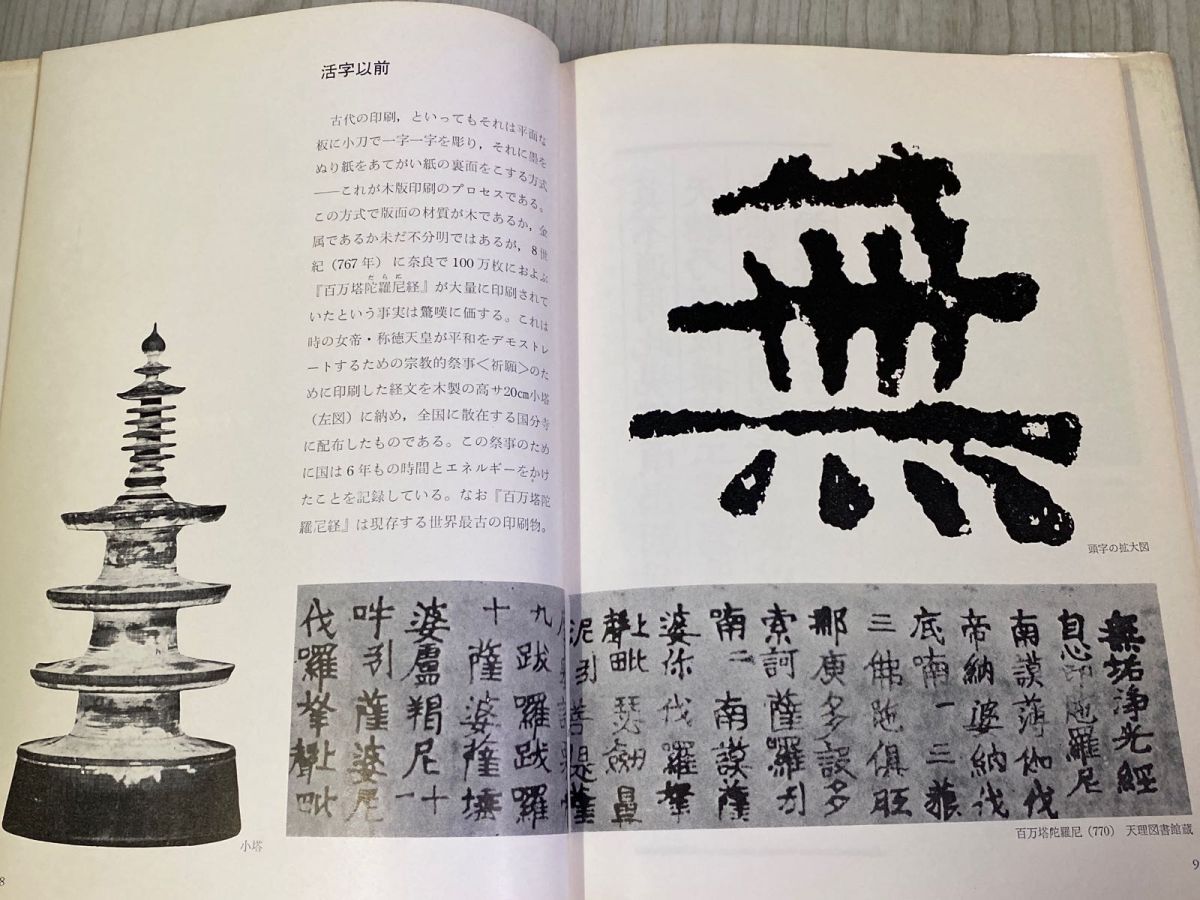 活字以前
古代の印刷，といってもそれは平面な
板に小刀で一字一字を彫り，それに墨を
ぬり紙をあてがい紙の裏面をこする方式
――これが木版印刷のプロセスである。
この方式で版面の材質が木であるか，金
属であるか未だ不分明ではあるが，8世
紀（767年）に奈良で100万枚におよぶ
だらに
『百万塔陀羅尼経』が大量に印刷されて
いたという事実は驚嘆に価する。これは
時の女帝・称徳天皇が平和をデモストレ
ートするための宗教的祭事＜祈願＞のた
めに印刷した経文を木製の高サ20cm小塔
（左図）に納め，全国に散在する国分寺
に配布したものである。この祭事のため
に国は6年もの時間とエネルギーをかけ
たことを記録している。なお『百万塔陀
羅尼経』は現存する世界最古の印刷物。
小塔
8
無
頭字の拡大図
無垢浄光經
自心印陁羅尼
南謨薄伽伐
帝納婆納伐
底喃一三藐
三佛陁俱胝
那庾多設多
索訶薩羅引
喃二南謨薩
婆你伐羅拏
上毗
聲瑟劔鼻
泥引菩提薩
九跋囉跋囉
十薩婆薩埵
婆盧羯尼十一
吽引薩婆尼
伐囉拏上毗
百万塔陀羅尼（770）天理図書館蔵
9